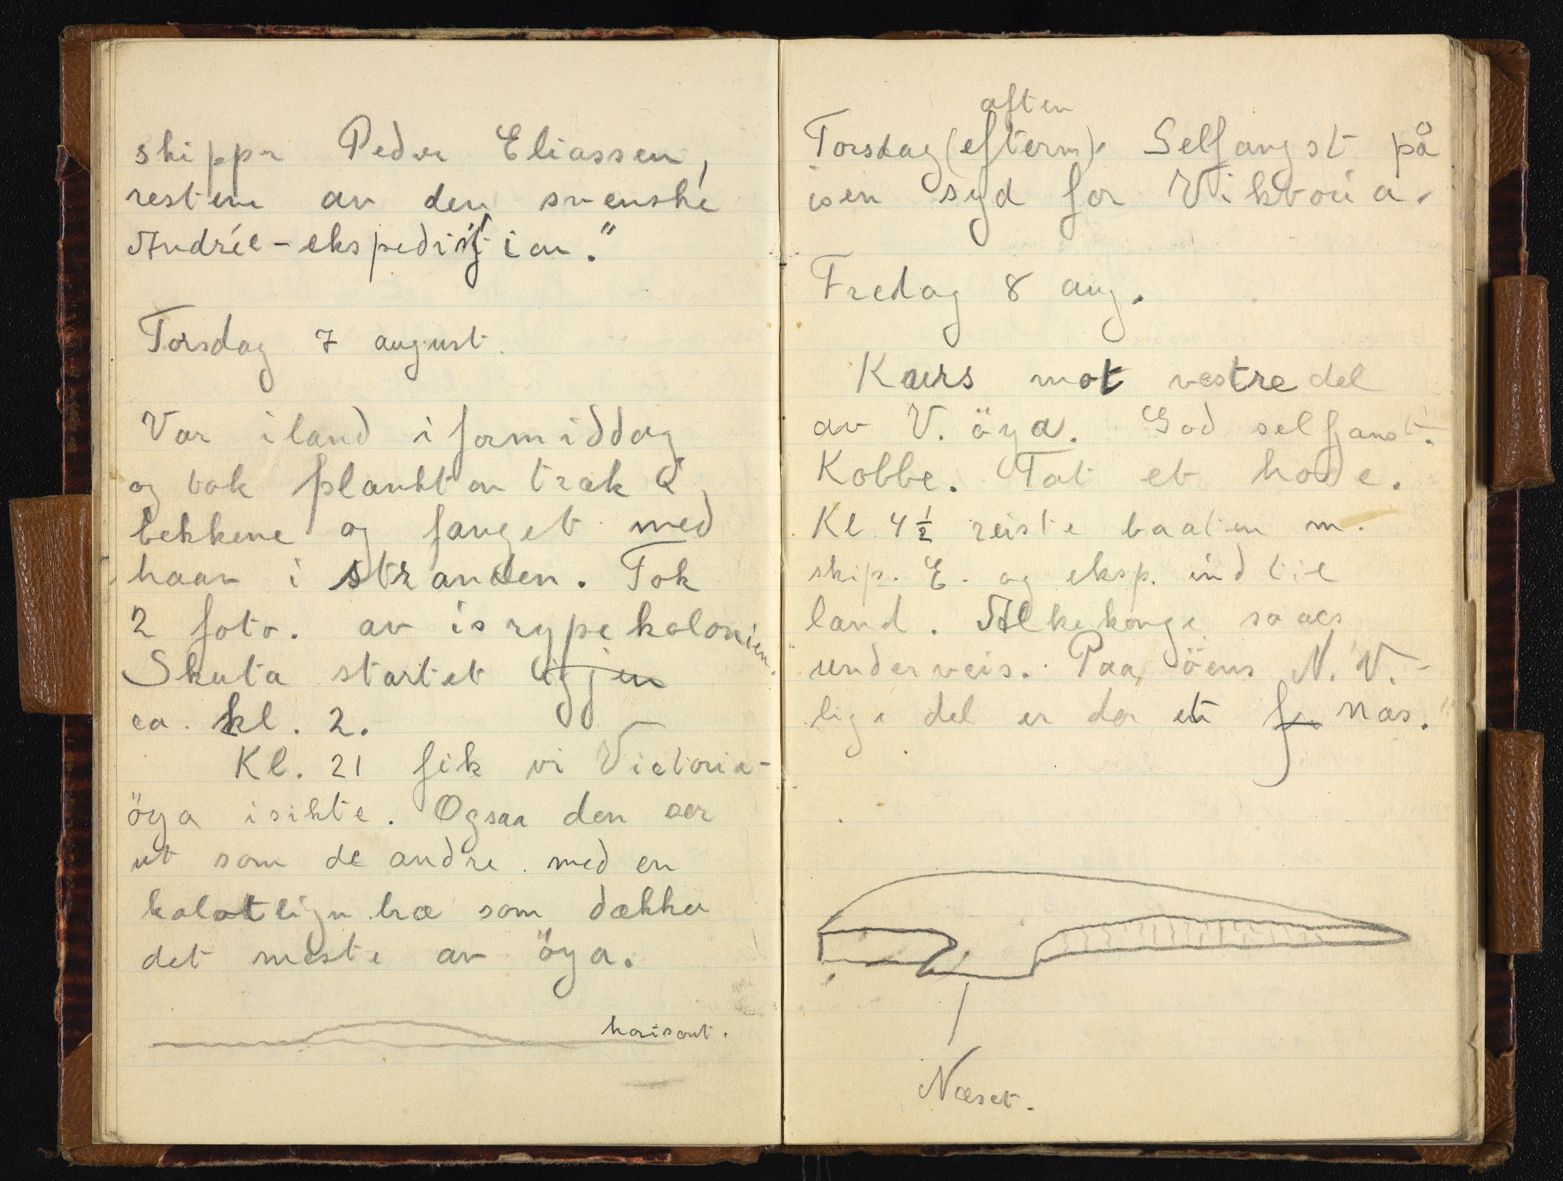 skippr Peder Eliassen,
resten av den svenske
Andrée-ekspedition."
Torsdag 7 august.
Var iland i formiddag
og tok plankton træk i
bekkene og fanget med
haav i stranden. Tok
2 foto. av isrypekolonien.
Skuta startet igjen
ca. kl. 2.
Kl. 21 fik vi Victoria-
öya isikte. Ogsaa den ser
ut som de andre med en
kalotlign. bræ som dækker
det meste av öya.
horisont.
aften
Torsdag (efterm). Selfangst på
isen syd for Viktoria.
Fredag 8 aug.
Kurs mot vestre del
av V. öya. God selfangst.
Kobbe. Tat et hode.
Kl 4½ reiste baaten m.
skip. E. og eksp. ind til
land. Alkekonge saaes
underveis. Paa öens N.V.-
lige del er der et næs.
Næset.